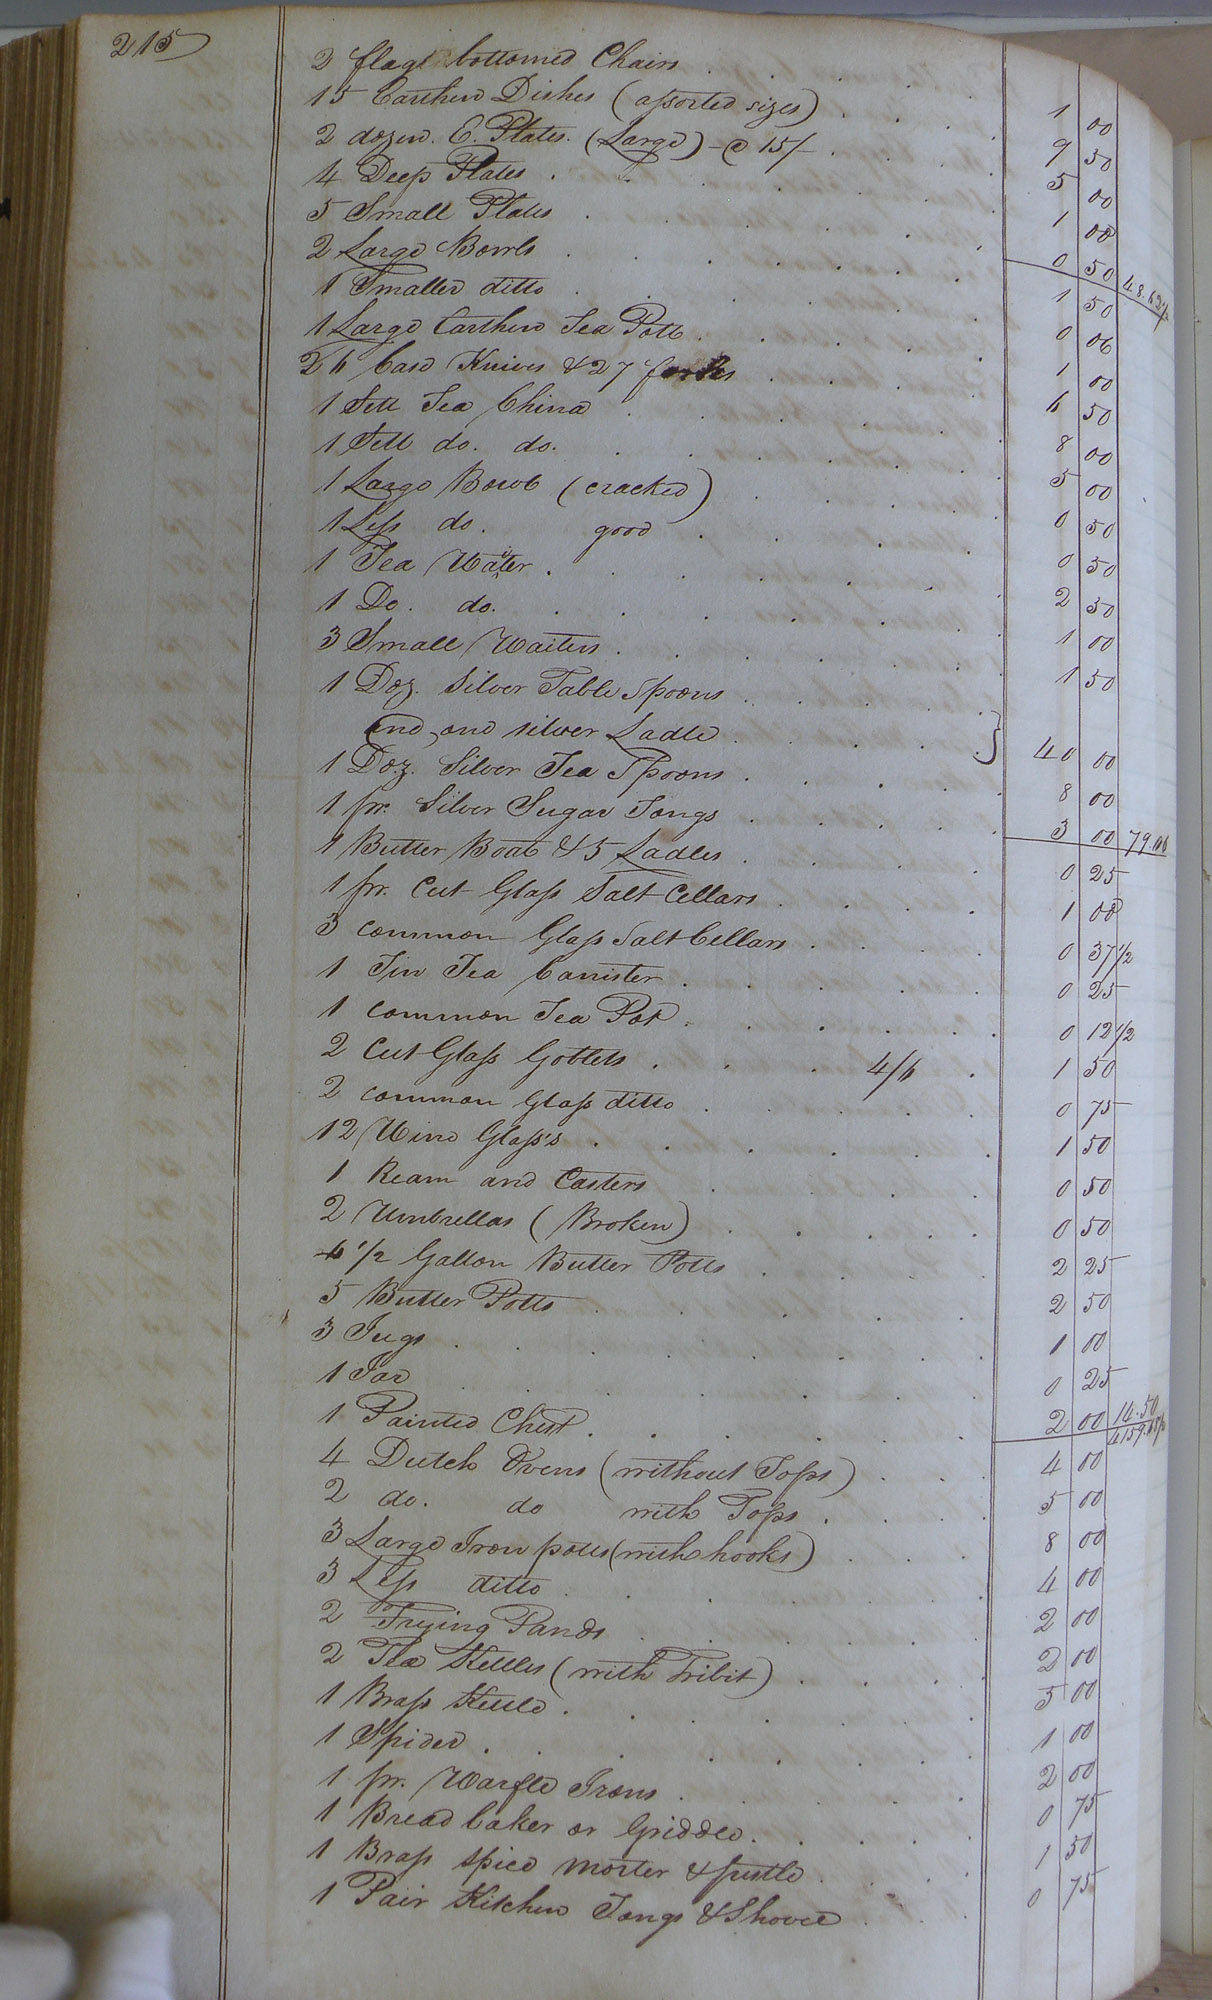 215
2 flagt bottomed Chairs 1 00
15 Earthen Dishes (assorted sizes) 9 50
2 dozen E. Plates. (Large) - @ 15/- 5 00
4 Deep Plates 1 00
5 Small Plates 0 50 48.62½
2 Large Bowls 1 50
1 Smaller ditto 0 06
1 Large Earthen Tea Pott 1 00
26 Case Knives & 27 forks 6 50
1 Sett Tea China 8 00
1 Sett do. do. 5 00
1 Large Bowl (cracked) 0 50
1 Less do. good 0 50
1 Tea Waiter 2 50
1 Do. do. 1 00
3 Small Waiters 1 50
1 Doz. Silver Table Spoons
and one silver Ladle } 40 00
1 Doz. Silver Tea Spoons 8 00
1 pr. Silver Sugar Tongs 3 00 79.06
1 Butter Boat & 5 Ladles 0 25
1 pr. Cut Glass Salt Cellars 1 00
3 common Glass Salt Cellars 0 37 1/2
1 Tin Tea Canister 0 25
1 common Tea Pot 0 12 1/2
2 Cut Glass Goblets 4/6 1 50
2 common Glass ditto 0 75
12 Wine Glass's 1 50
1 Ream and Casters 0 50
2 Umbrellas (Broken) 0 50
6 1/2 Gallon Butter Potts 2 25
5 Butter Potts 2 50
3 Jugs 1 00
1 Jar 0 25
1 Painted Chest 2 00 14.50
4 Dutch Ovens (without Tops) 4 00
2 do. do with Tops 5 00
3 Large Iron potts (with hooks) 8 00
3 Less ditto 4 00
2 Frying Pands 2 00
2 Tea Kettles (with Tribit) 2 00
1 Brass Kettle 5 00
1 Spider 1 00
1 pr. Warfle Irons 2 00
1 Bread baker or Griddeo 0 75
1 Brass spice morter & pestle 1 50
1 Pair Kitchen Tongs & Shovel 0 75